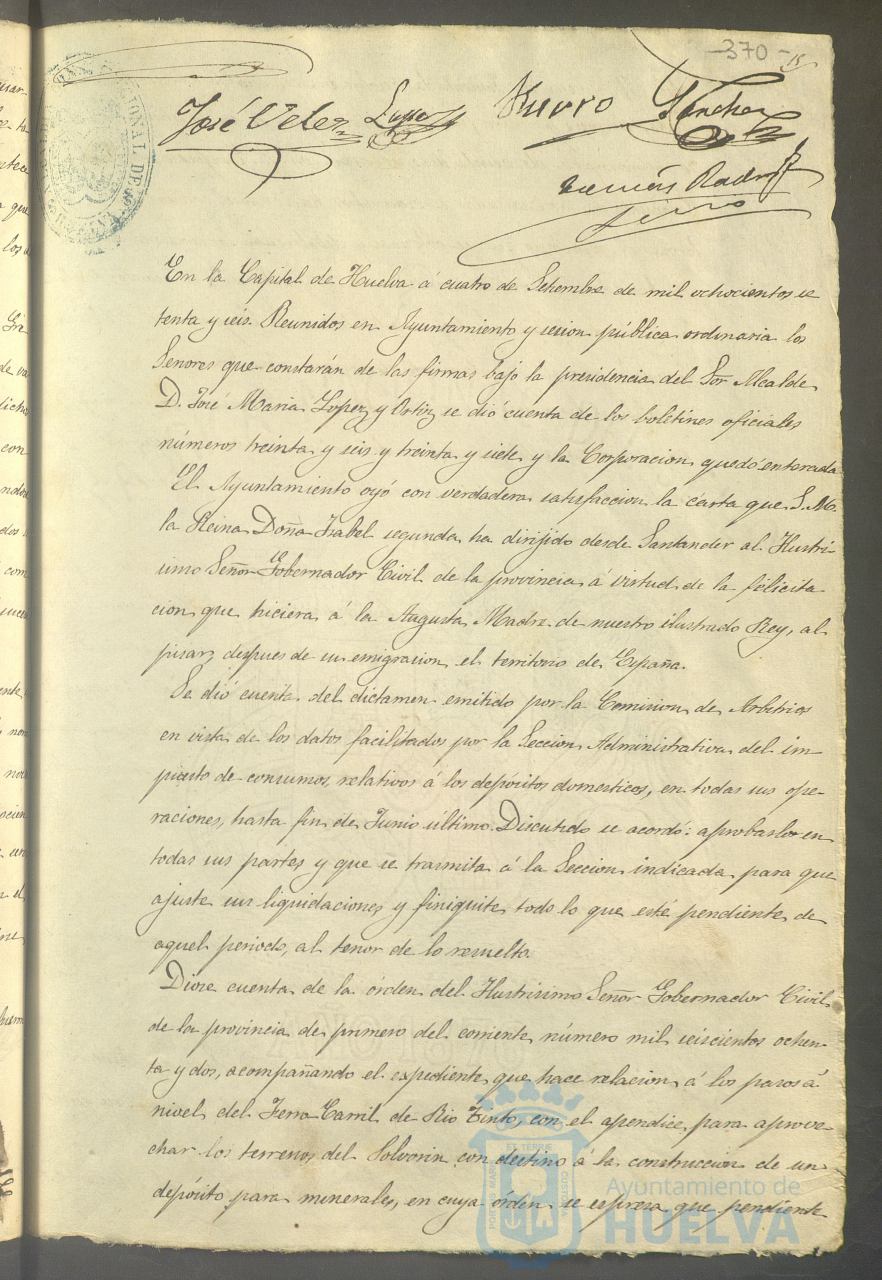 370
José Velez
Sanchez
En la Capital de Huelva á cuatro de Setiembre de mil ochocientos se
tenta y seis. Reunidos en Ayuntamiento y sesion pública ordinaria los
Señores que constarán de las firmas bajo la presidencia del Sor Alcalde
D. José Maria Lopez y Ortiz se dió cuenta de los boletines oficiales
números treinta y seis y treinta y siete y la Corporacion quedó enterada
El Ayuntamiento oyó con verdadera satisfaccion la carta que S. M.
la Reina Doña Isabel segunda ha dirijido desde Santander al Ilustri-
simo Señor Gobernador Civil de la provincia á virtud de la felicita
cion que hiciera á la Augusta Madre de nuestro ilustrado Rey, al
pisar despues de su emigracion el territorio de España.
Se dió cuenta del dictamen emitido por la Comision de Arbitrios
en vista de los datos facilitados por la Seccion Administrativa del im-
puesto de consumos, relativos á los depósitos domesticos, en todas sus ope-
raciones, hasta fin de Junio último. Discutido se acordó: aprobarlo en
todas sus partes y que se trasmita á la Seccion indicada para que
ajuste sus liquidaciones y finiquite todo lo que esté pendiente de
aquel periodo, al tenor de lo resuelto.
Diose cuenta de la órden del Ilustrisimo Señor Gobernador Civil
de la provincia de primero del corriente número mil seiscientos ochen-
ta y dos, acompañando el espediente que hace relacion á los pasos á
nivel del Ferro-Carril de Rio Tinto, con el apendice para aprove-
char los terrenos del Polvorin con destino á la construccion de un
depósito para minerales, en cuya órden se espresa que pendiente
Ayuntamiento de
HUELVA